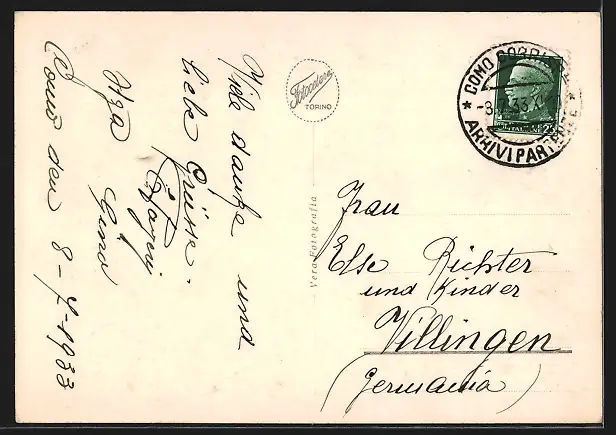 Viele danke und
liebe Grüsse.
Gina
Como den 8-7-1933
Fotocelere
TORINO
Vera Fotografia
COMO CORRISP
-8.7.33.XI
ARRIVI PARTENZE
Frau
Else Richter
und Kinder
Villingen
(Germania)